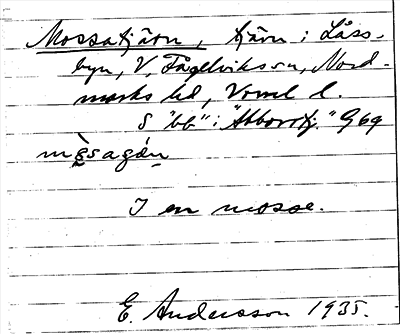 Mossatjärn, tjärn i Låss-
byn, V. Fågelviks sn, Nord-
marks hd, Vrml l.
S "bb" i "Abborrtj." G 69
mɡ̀sagǻn
I en mosse.
E. Andersson 1935.